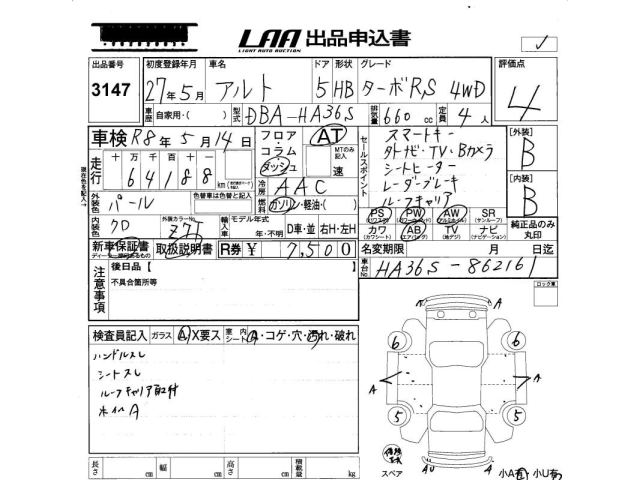 LAA 出品申込書
LIGHT AUTO AUCTION
出品番号 初度登録年月 車名 ドア 形状 グレード 評価点
3147 27年5月 アルト 5 HB ターボR,S 4WD 4
車歴 自家用・( ) 型式 DBA-HA36S 排気量 660 cc 定員 4人
車検 R8年5月14日 フロア・コラム・ダッシュ AT セールスポイント スマートキー [外装]
MTのみ記入 外ナビ・TV・Bカメラ B
走行 十万千百十一 速 シートヒーター
64188 km 冷房 AAC レーダーブレーキ [内装]
外装色 パール 色替車は色替と記入 燃料 ガソリン・軽油・( ) ルーフキャリア B
内装色 クロ 外装カラーNo Z7T 輸入車 モデル年式 年・不明 D車・並 右H・左H
PS PW AW SR (サンルーフ) 純正品のみ丸印
カワ AB (エアバック) TV (地デジ) ナビ (ナビゲーション)
新車保証書 取扱説明書 R券 ¥ 7,500 名変期限 月 日迄
車台No HA36S-862161
注意事項 後日品【 】
不具合箇所等
検査員記入 ガラス A X要ス 室内シート A・コゲ・穴・汚れ・破れ
ハンドルスレ
シートスレ
ルーフキャリア取付
ホイルA
A
A
6
6
A
A
5
5
スペア
AU
A
小A有 小U有
長さ cm 幅 cm 高さ cm 積載量 kg